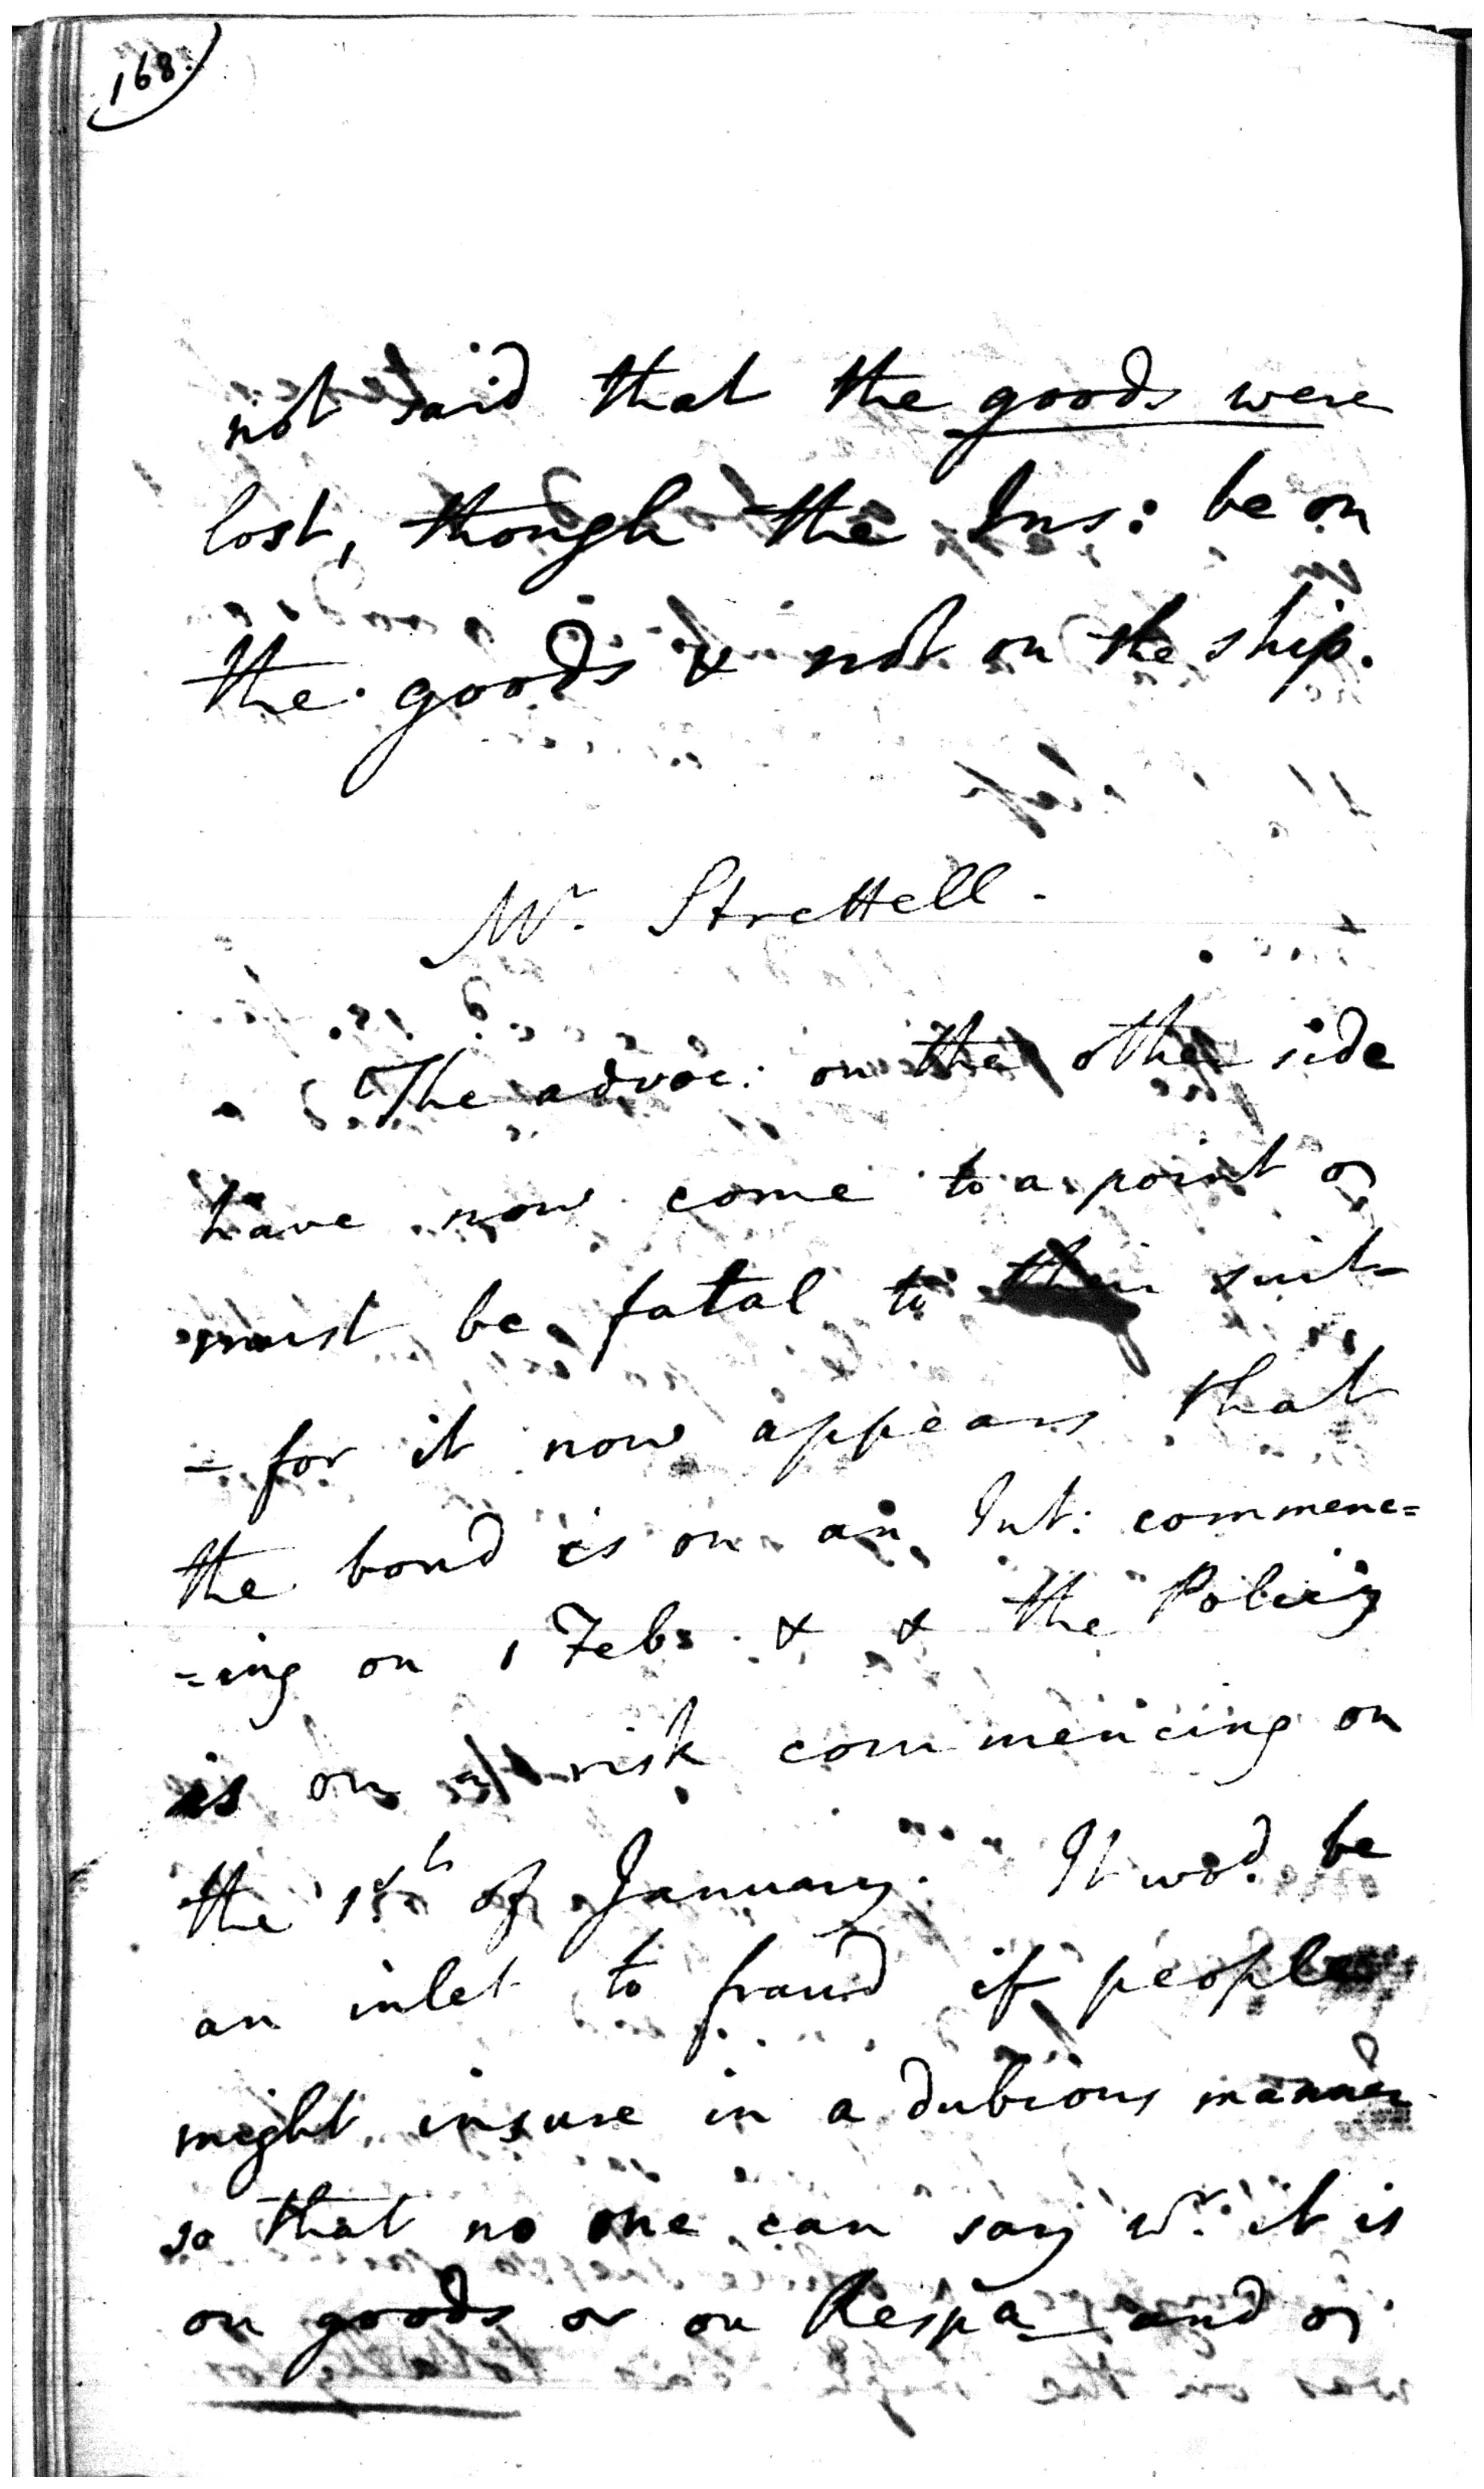 168.
not said that the goods were
lost, though the Ins: be on
the goods & not on the ship.
Mr. Strettell.
The advoc: on the other side
have now come to a point
must be fatal to their suit
- for it now appears that
the bond is on an Int: commenc=
=ing on 1 Feb: & & the Policy
is on risk commencing on
the of January. It wod. be
an inlet to fraud if people
might insure in a dubious manner
so that no one can say wr. it is
on goods or on Respa and